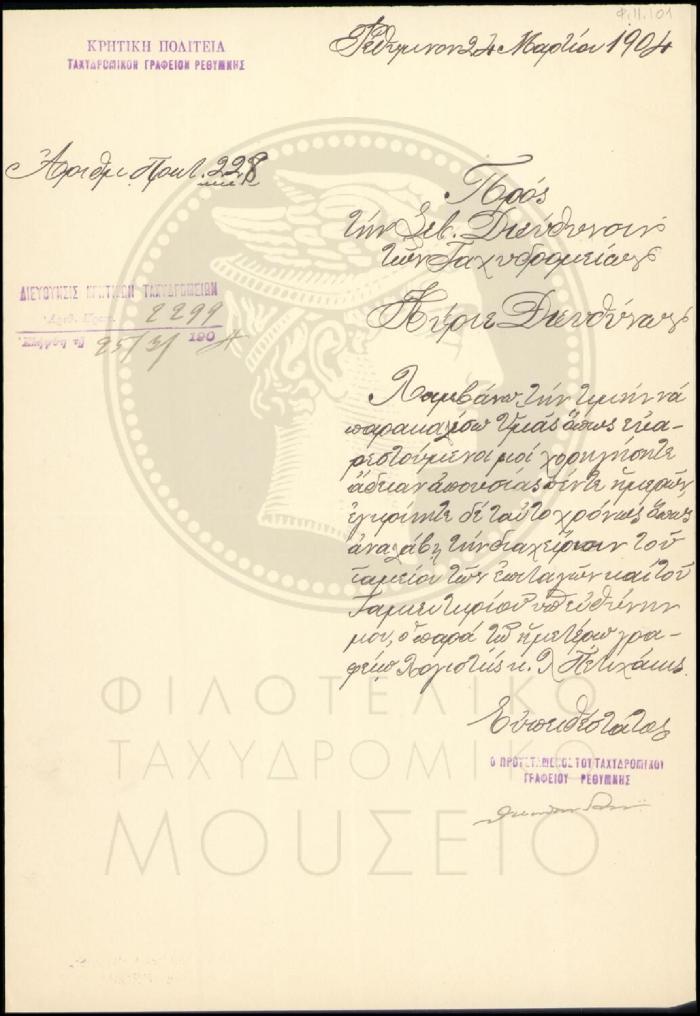 Φ.11.101
ΚΡΗΤΙΚΗ ΠΟΛΙΤΕΙΑ
ΤΑΧΥΔΡΟΜΙΚΟΝ ΓΡΑΦΕΙΟΝ ΡΕΘΥΜΝΗΣ
Ρέθυμνον 24 Μαρτίου 1904
Ἀριθμ. Πρωτ. 228
Πρός
τὴν Σεβ. Διεύθυνσιν
τῶν Ταχυδρομείων
ΔΙΕΥΘΥΝΣΙΣ ΚΡΗΤΙΚΩΝ ΤΑΧΥΔΡΟΜΕΙΩΝ
Ἀριθ. Πρωτ. 2299
Ἐλήφθη τῇ 25/3/ 1904
Κύριε Διευθυντά,
Λαμβάνω τὴν τιμὴν νὰ
παρακαλέσω Ὑμᾶς ὅπως εὐα-
ρεστούμενοι μοὶ χορηγήσητε
ἄδειαν ἀπουσίας πέντε ἡμερῶν,
ἐγκρίνητε δὲ ταὐτοχρόνως ὅπως
ἀναλάβῃ τὴν διαχείρισιν τοῦ
ταμείου τῶν ἐπιταγῶν καὶ τοῦ
Ταμιευτηρίου ὑπ' εὐθύνην
μου, ὁ παρὰ τῷ ἡμετέρῳ γρα-
φείῳ λογιστὴς κ. Λ. Πετυχάκης.
Εὐπειθέστατος
Ο ΠΡΟΪΣΤΑΜΕΝΟΣ ΤΟΥ ΤΑΧΥΔΡΟΜΙΚΟΥ
ΓΡΑΦΕΙΟΥ ΡΕΘΥΜΝΗΣ
ΦΙΛΟΤΕΛΙΚΟ
ΤΑΧΥΔΡΟΜΙΚΟ
ΜΟΥΣΕΙΟ